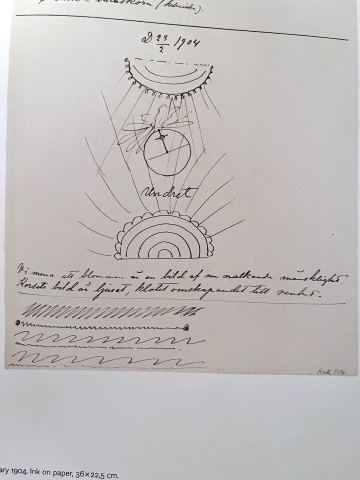 D 23/2 1904
Undret
Vi mena att blomman är en bild af en nalkande mänsklighet.
Korsets bild är ljuset, klotet omskapandet till renhet.
HaK 1516
ary 1904. Ink on paper, 36×22,5 cm.